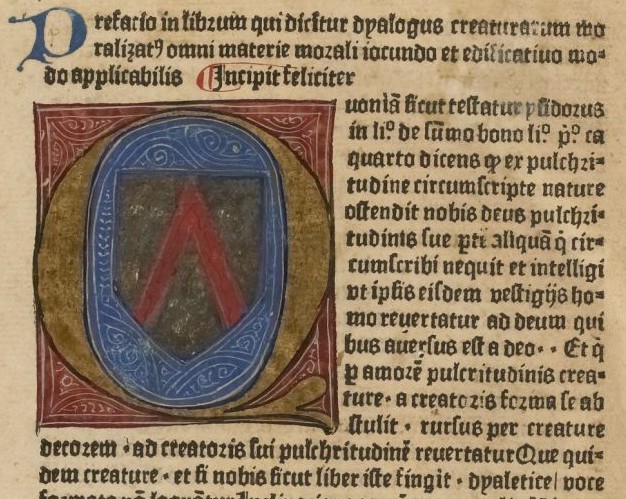 Prefacio in librum qui dicitur dyalogus creaturarum mo
ralizatꝰ omni materie morali iocundo et edificatiuo mo⸗
do applicabilis Incipit feliciter
Quoniā sicut testatur ysidorus
in li° de sūmo bono li° p̊° ca
quarto dicens ꝙ ex pulchri⸗
tudine circumscripte nature
ostendit nobis deus pulchri⸗
tudinis sue ꝑtē aliquā q̇ cir⸗
cumscribi nequit et intelligi
vt ipsis eisdem vestigijs ho⸗
mo reuertatur ad deum qui
bus auersus est a deo· · Et q̇
ꝑ amorē pulcritudinis crea⸗
ture· a creatoris forma se ab
stulit · rursus per creature
decorem · ad creatoris sui pulchritudinē reuertatur Que qui⸗
dem creature · et si nobis sicut liber iste fingit · dyaletice voce